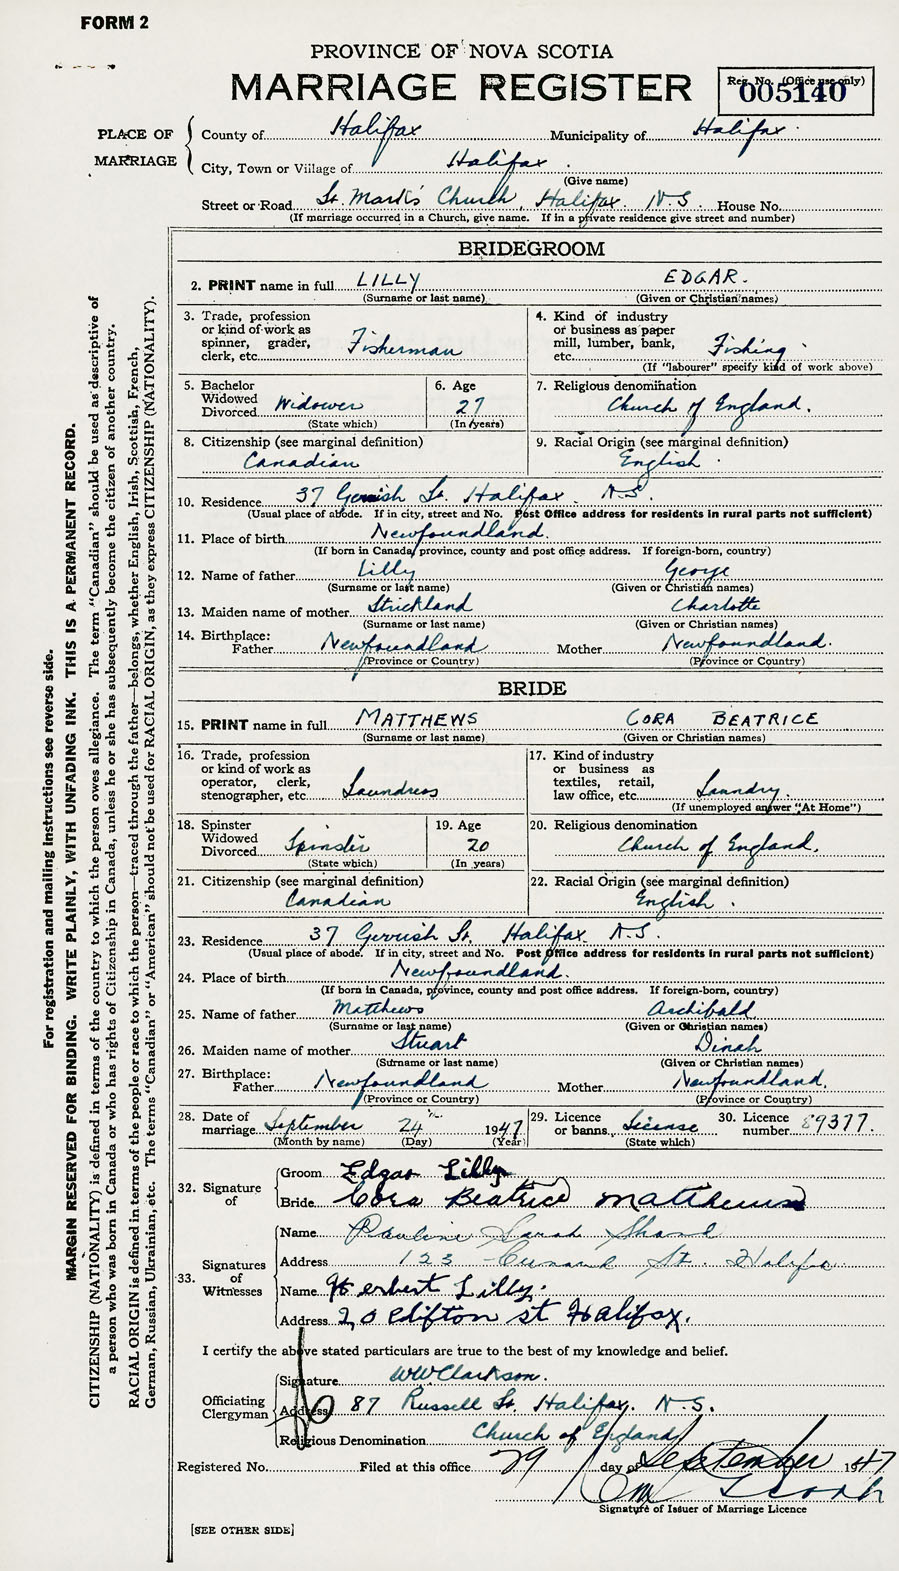 FORM 2
PROVINCE OF NOVA SCOTIA
MARRIAGE REGISTER
Reg. No. (Office use only)
005140
PLACE OF MARRIAGE
County of Halifax Municipality of Halifax
City, Town or Village of Halifax
(Give name)
Street or Road St. Mark's Church, Halifax N.S. House No.
(If marriage occurred in a Church, give name. If in a private residence give street and number)
BRIDEGROOM
2. PRINT name in full LILLY EDGAR.
(Surname or last name) (Given or Christian names)
3. Trade, profession or kind of work as spinner, grader, clerk, etc. Fisherman
4. Kind of industry or business as paper mill, lumber, bank, etc. Fishing
(If "labourer" specify kind of work above)
5. Bachelor Widowed Divorced Widower
(State which)
6. Age 27
(In years)
7. Religious denomination Church of England.
8. Citizenship (see marginal definition) Canadian
9. Racial Origin (see marginal definition) English
10. Residence 37 Gerrish St. Halifax N.S.
(Usual place of abode. If in city, street and No. Post Office address for residents in rural parts not sufficient)
11. Place of birth Newfoundland.
(If born in Canada, province, county and post office address. If foreign-born, country)
12. Name of father Lilly George
(Surname or last name) (Given or Christian names)
13. Maiden name of mother Strickland Charlotte
(Surname or last name) (Given or Christian names)
14. Birthplace:
Father Newfoundland Mother Newfoundland.
(Province or Country) (Province or Country)
BRIDE
15. PRINT name in full MATTHEWS CORA BEATRICE
(Surname or last name) (Given or Christian names)
16. Trade, profession or kind of work as operator, clerk, stenographer, etc. Laundress
17. Kind of industry or business as textiles, retail, law office, etc. Laundry.
(If unemployed answer "At Home")
18. Spinster Widowed Divorced Spinster
(State which)
19. Age 20
(In years)
20. Religious denomination Church of England.
21. Citizenship (see marginal definition) Canadian
22. Racial Origin (see marginal definition) English.
23. Residence 37 Gerrish St. Halifax N.S.
(Usual place of abode. If in city, street and No. Post Office address for residents in rural parts not sufficient)
24. Place of birth Newfoundland.
(If born in Canada, province, county and post office address. If foreign-born, country)
25. Name of father Matthews Archibald
(Surname or last name) (Given or Christian names)
26. Maiden name of mother Stuart Dinah
(Surname or last name) (Given or Christian names)
27. Birthplace:
Father Newfoundland Mother Newfoundland.
(Province or Country) (Province or Country)
28. Date of marriage September 24 1947
(Month by name) (Day) (Year)
29. Licence or banns License
(State which)
30. Licence number 89377.
32. Signature of
Groom Edgar Lilly
Bride Cora Beatrice Matthews
33. Signatures of Witnesses
Name Pauline Sarah Shand
Address 123 Cunard St. Halifax
Name Herbert Lilly.
Address 20 Clifton st Halifax.
I certify the above stated particulars are true to the best of my knowledge and belief.
Officiating Clergyman
Signature WW Clarkson.
Address 87 Russell St. Halifax, N.S.
Religious Denomination Church of England
Registered No. Filed at this office 29 day of September 1947
Signature of Issuer of Marriage Licence
[SEE OTHER SIDE]
For registration and mailing instructions see reverse side.
MARGIN RESERVED FOR BINDING. WRITE PLAINLY, WITH UNFADING INK. THIS IS A PERMANENT RECORD.
CITIZENSHIP (NATIONALITY) is defined in terms of the country to which the person owes allegiance. The term "Canadian" should be used as descriptive of
a person who was born in Canada or who has rights of Citizenship in Canada, unless he or she has subsequently become the citizen of another country.
RACIAL ORIGIN is defined in terms of the people or race to which the person—traced through the father—belongs, whether English, Irish, Scottish, French,
German, Russian, Ukrainian, etc. The terms "Canadian" or "American" should not be used for RACIAL ORIGIN, as they express CITIZENSHIP (NATIONALITY).